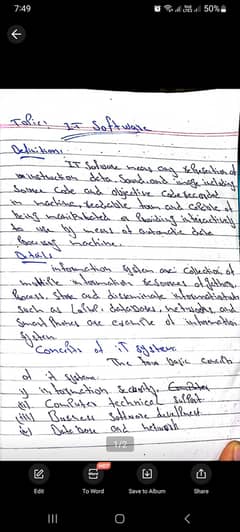 7:49
50%
Topic: IT Software
Definition:
IT Software means any of
instruction data Sound and image including
Source Code and objective Code
in machine, readable from and capable of
being or Providing interactively
to use by means of automatic data
Processing machine.
Details
information system are Collection of
multiple information resources
Process, store and disseminate information
such as databases, networks, and
Smart Phones are example of information
System
Concepts of IT System:
The four basic concepts
of it system.
information Security.
(ii) Computer technical support
(iii) Business Software
Data base and network
1/2
Edit
HOT
To Word
Save to Album
Share